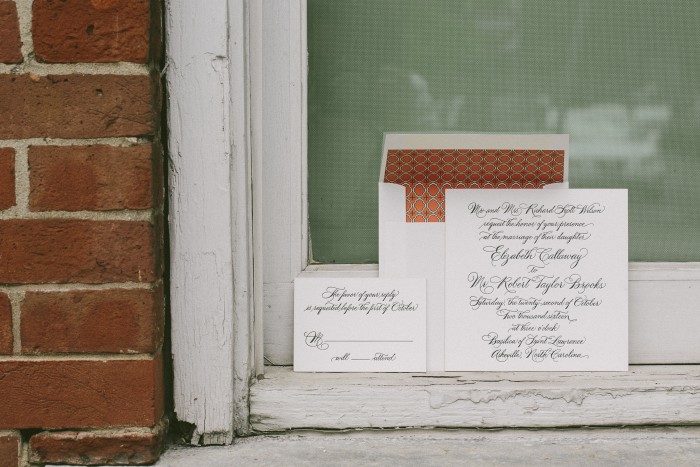 The favor of your reply
is requested before the first of October
M
will attend
Mr. and Mrs. Richard Scott Wilson
request the honor of your presence
at the marriage of their daughter
Elizabeth Callaway
to
Mr. Robert Taylor Brooks
Saturday, the twenty-second of October
Two thousand sixteen
at three o'clock
Basilica of Saint Lawrence
Asheville, North Carolina